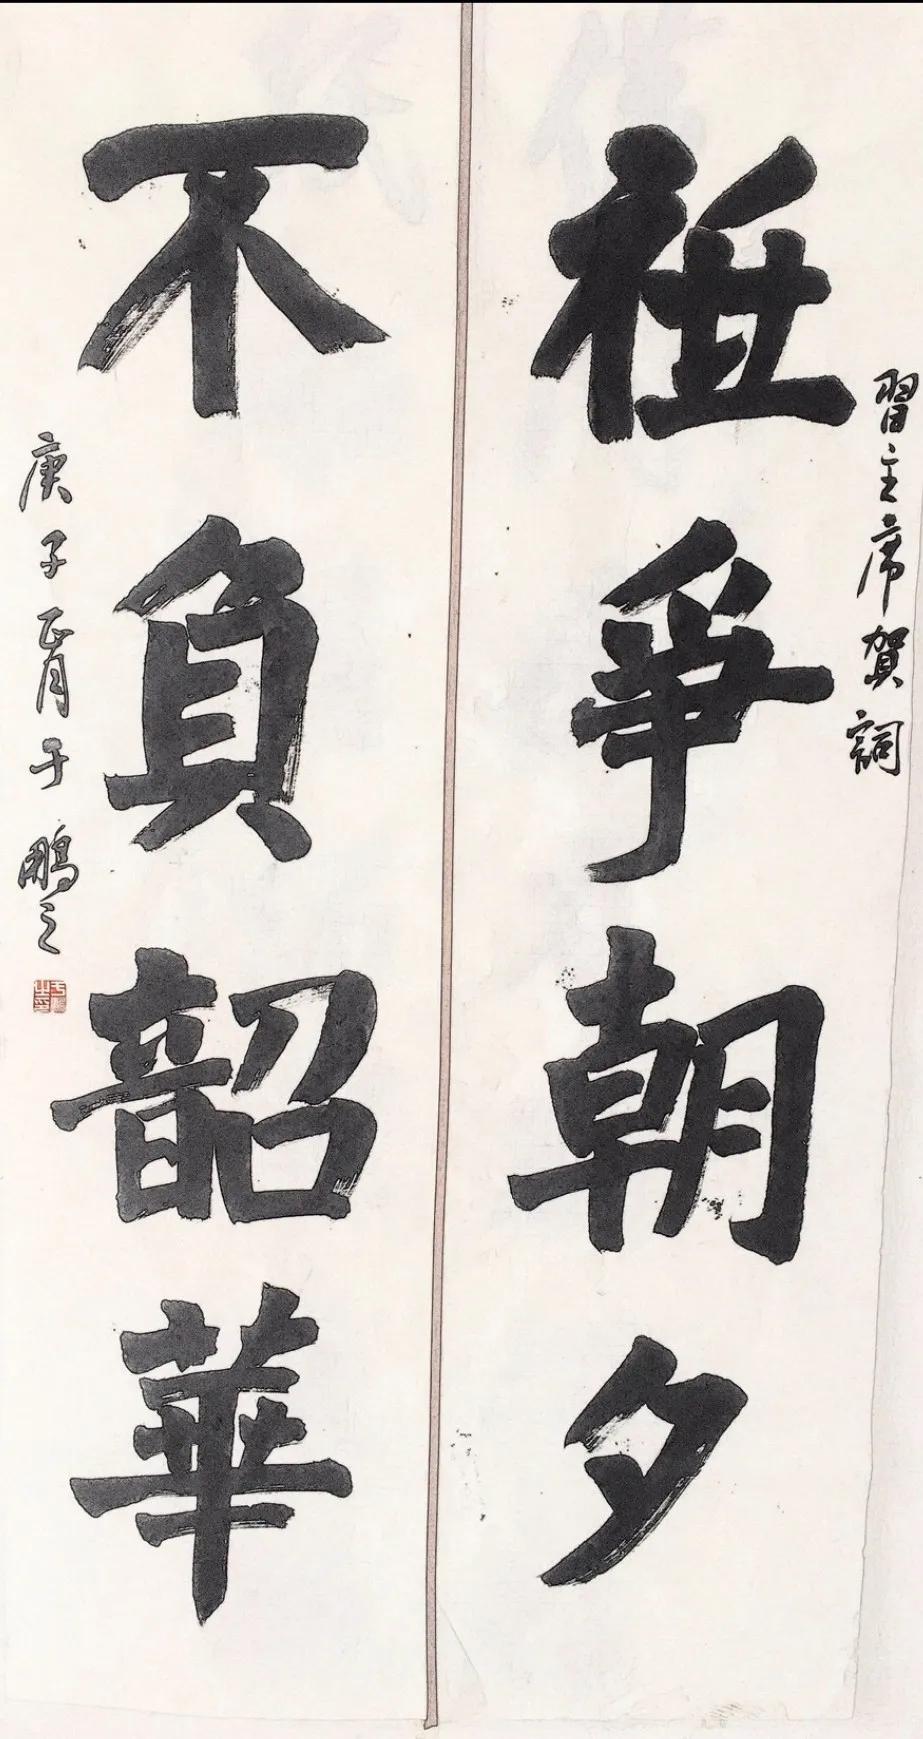 習主席賀詞
祗爭朝夕
不負韶華
庚子正月于鵬之